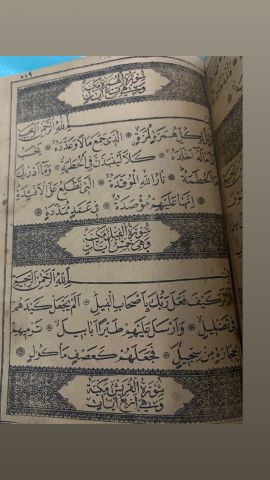 ٥١٩
سورة الهمزة مكية
وهي تسع آيات
بسم الله الرحمن الرحيم
ويل لكل همزة لمزة الذي جمع مالا وعدده يحسب
ان ماله اخلده كلا لينبذن في الحطمة وما ادريك
ما الحطمة نار الله الموقدة التي تطلع على الافئدة
انها عليهم مؤصدة في عمد ممددة
سورة الفيل مكية
وهي خمس آيات
بسم الله الرحمن الرحيم
الم تر كيف فعل ربك باصحاب الفيل الم يجعل كيدهم
في تضليل وارسل عليهم طيرا ابابيل ترميهم
بحجارة من سجيل فجعلهم كعصف مأكول
سورة القريش مكية
وهي اربع آيات